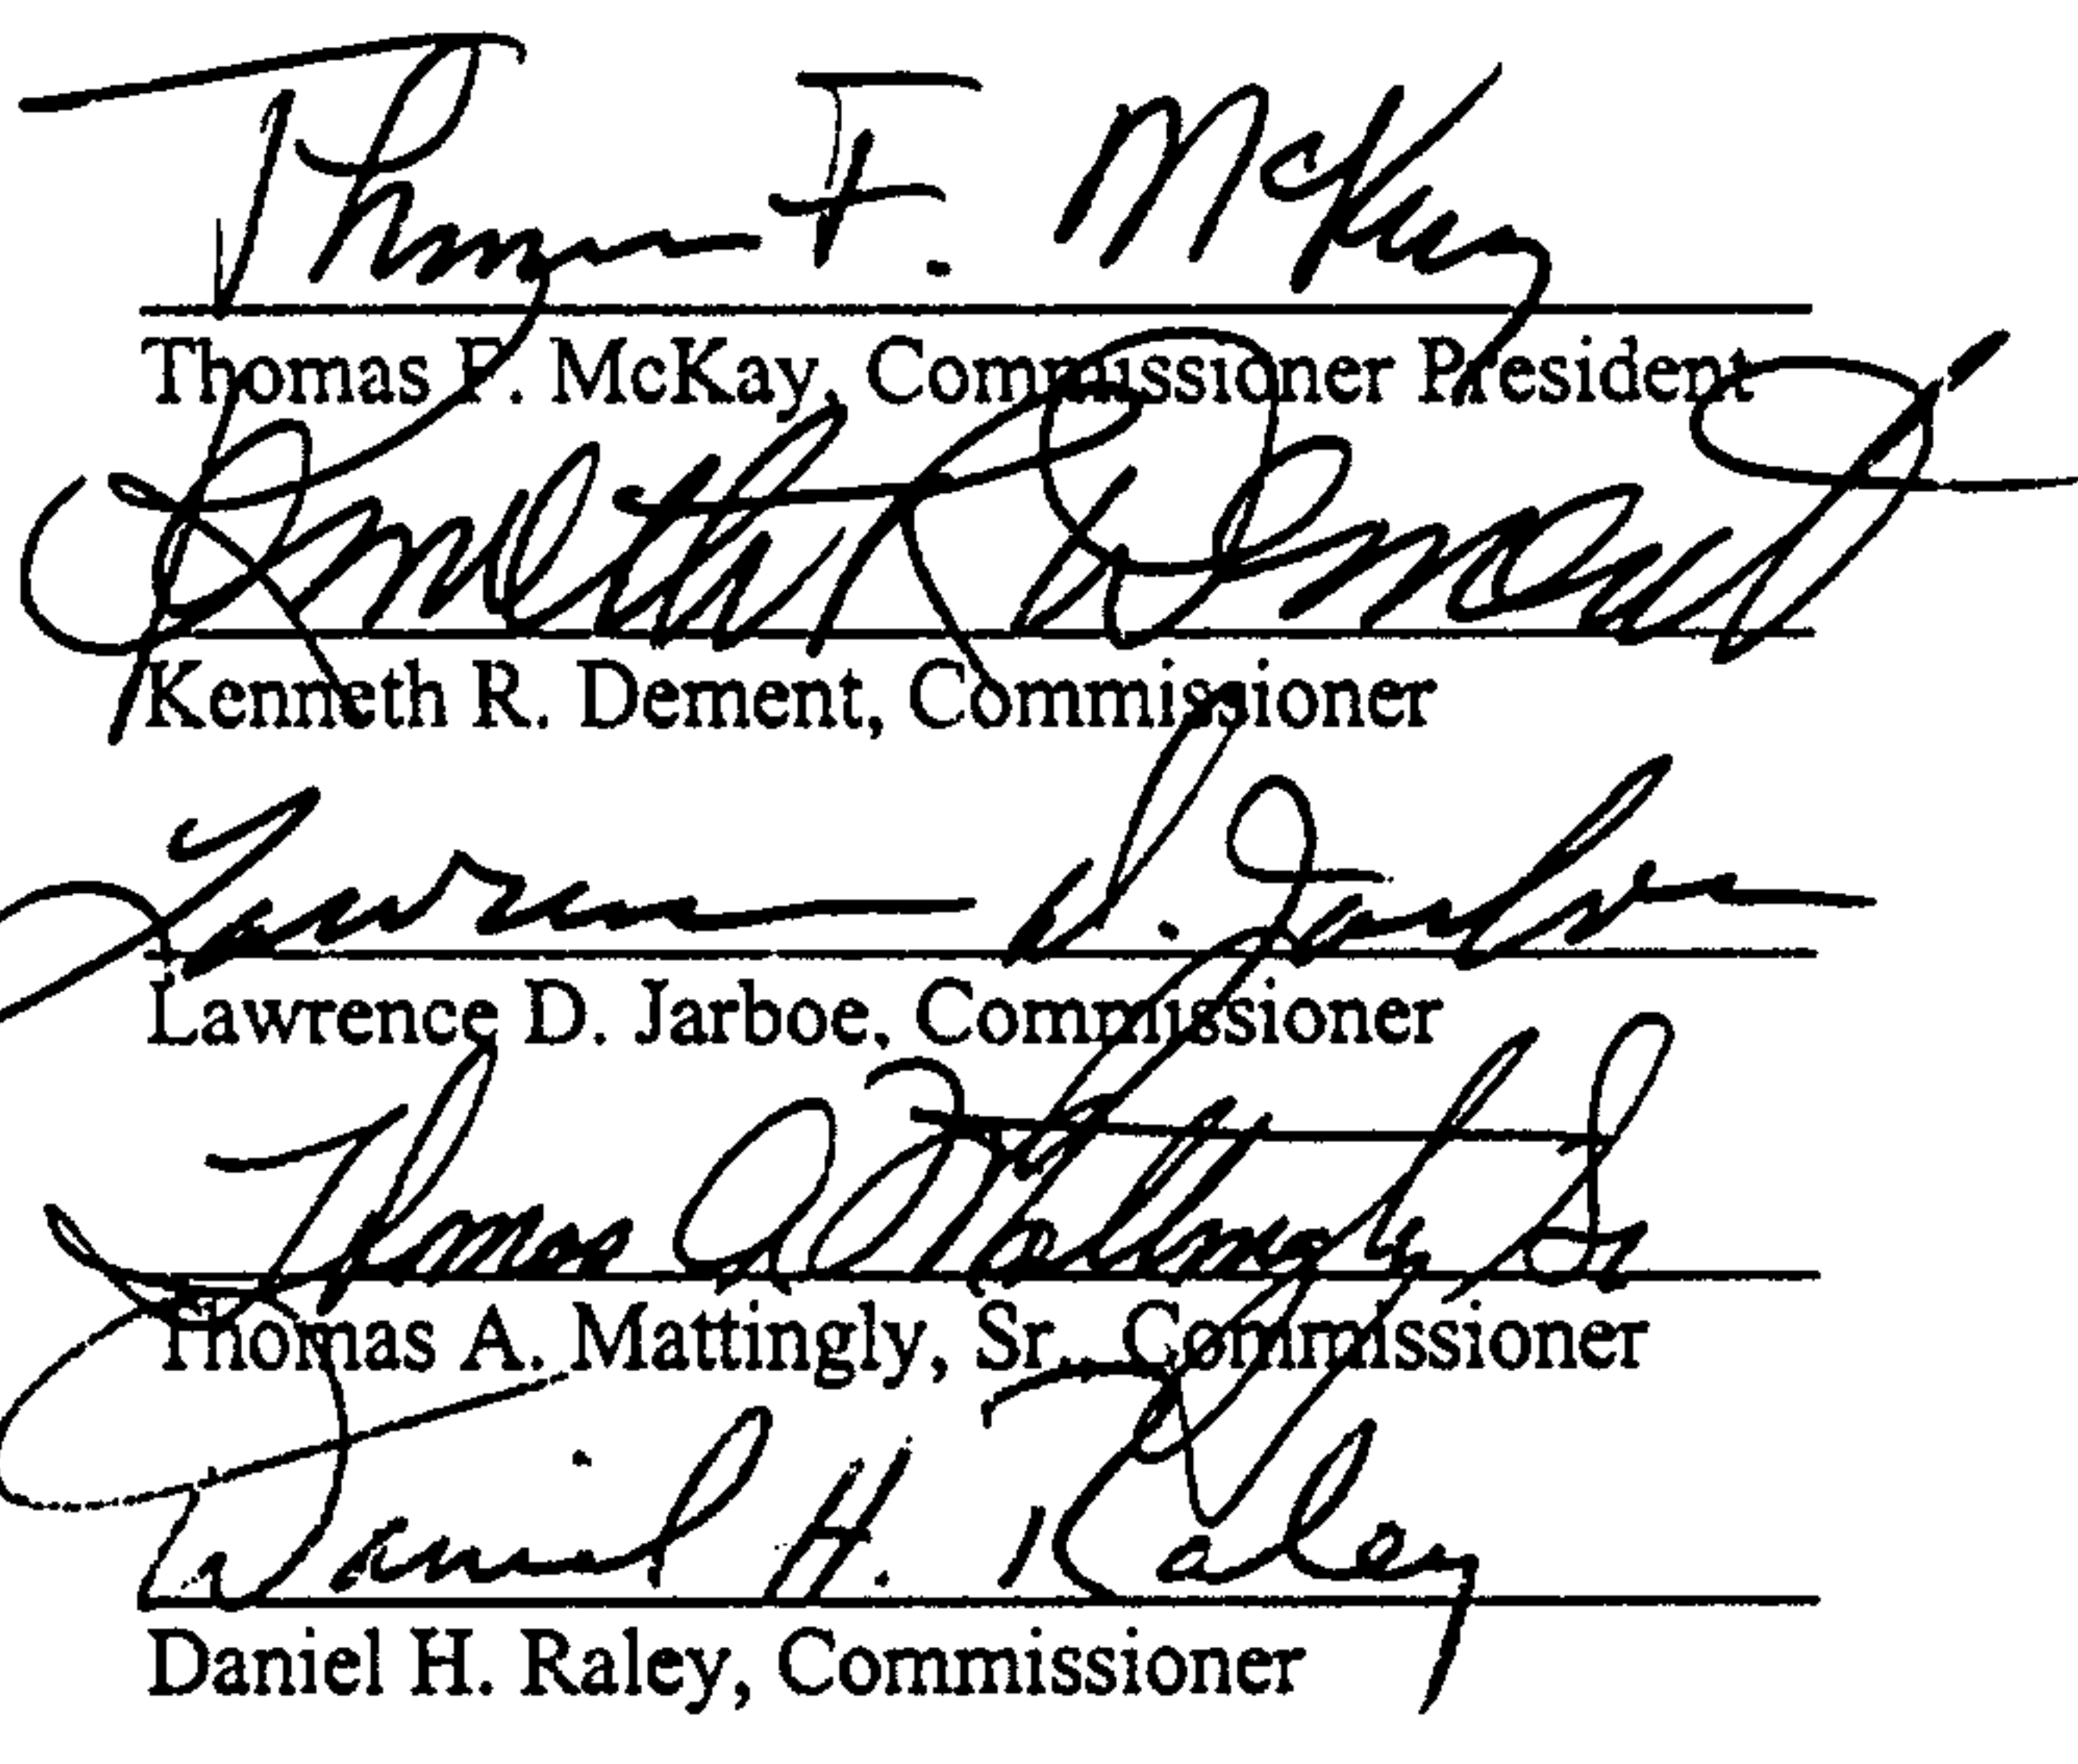 Thomas F. McKay
Thomas F. McKay, Commissioner President
Kenneth R Dement
Kenneth R. Dement, Commissioner
Lawrence D. Jarboe
Lawrence D. Jarboe, Commissioner
Thomas A Mattingly Sr
Thomas A. Mattingly, Sr., Commissioner
Daniel H. Raley
Daniel H. Raley, Commissioner